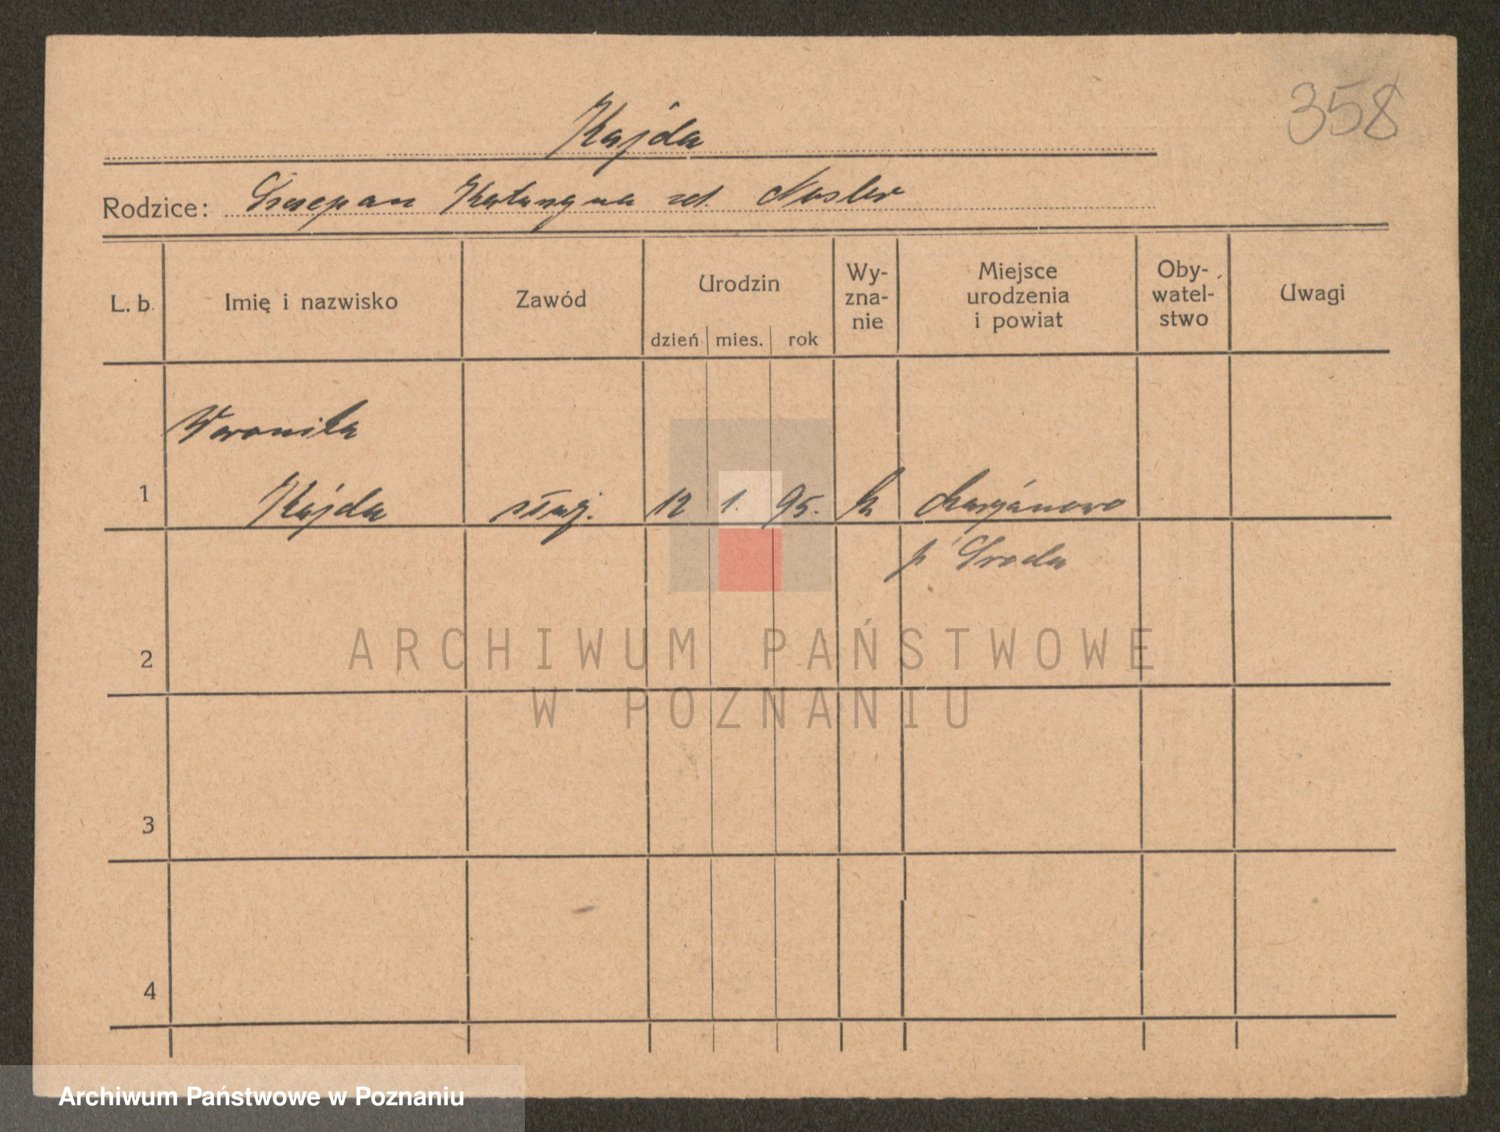 358
Kajda
Rodzice: Szczepan Katarzyna zd. 
L. b. Imię i nazwisko Zawód Urodzin Wy-zna-nie Miejsce urodzenia i powiat Oby-watel-stwo Uwagi
dzień mies. rok
Weronika
1 Kajda służ. 12 1. 95. k
p. Środa
2
3
4
ARCHIWUM PAŃSTWOWE
W POZNANIU
Archiwum Państwowe w Poznaniu